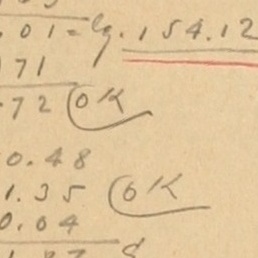 .01 = lg. 154.12
71
.72 OK
0.48
1.35 OK
0.04